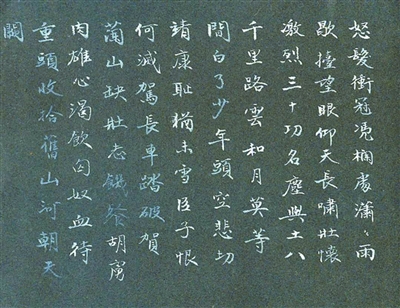 怒髮衝冠凭欄處瀟々雨
歇擡望眼仰天長嘯壯懷
激烈三十功名塵與土八
千里路雲和月莫等
間白了少年頭空悲切
靖康恥猶未雪臣子恨
何滅駕長車踏破賀
蘭山缺壯志饑餐胡虜
肉雄心渴飲匈奴血待
重頭收拾舊山河朝天
闕